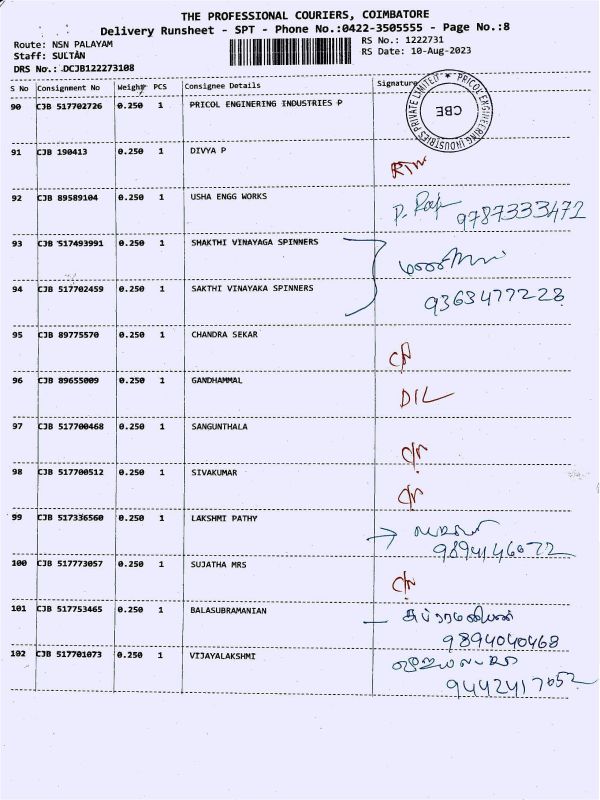 THE PROFESSIONAL COURIERS, COIMBATORE
Delivery Runsheet - SPT - Phone No.:0422-3505555 - Page No.:8
Route: NSN PALAYAM
RS No.: 1222731
Staff: SULTAN
RS Date: 10-Aug-2023
DRS No.: DCJB122273108
S No Consignment No Weight PCS Consignee Details Signature
PRICOL ENGINEERING INDUSTRIES PRIVATE LIMITED *
CBE
90 CJB 517702726 0.250 1 PRICOL ENGINERING INDUSTRIES P
91 CJB 190413 0.250 1 DIVYA P
RTN
92 CJB 89589104 0.250 1 USHA ENGG WORKS
9787333472
93 CJB 517493991 0.250 1 SHAKTHI VINAYAGA SPINNERS
94 CJB 517702459 0.250 1 SAKTHI VINAYAKA SPINNERS
9363477228
95 CJB 89775570 0.250 1 CHANDRA SEKAR
96 CJB 89655009 0.250 1 GANDHAMMAL
DIL
97 CJB 517700468 0.250 1 SANGUNTHALA
98 CJB 517700512 0.250 1 SIVAKUMAR
99 CJB 517336560 0.250 1 LAKSHMI PATHY
9894146072
100 CJB 517773057 0.250 1 SUJATHA MRS
101 CJB 517753465 0.250 1 BALASUBRAMANIAN
சுப்ரமணியன்
9894040468
102 CJB 517701073 0.250 1 VIJAYALAKSHMI
9442417052